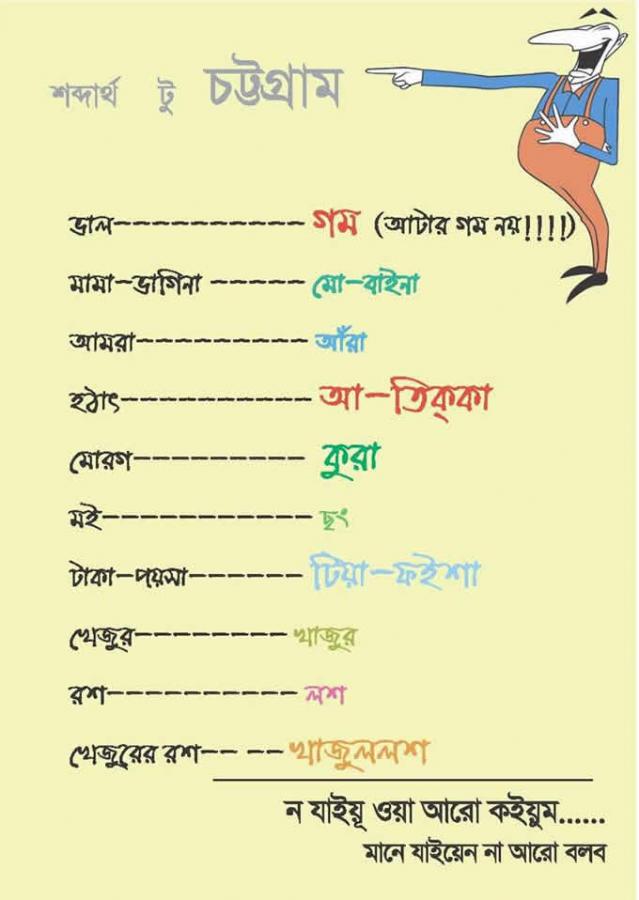 শব্দার্থ টু চট্টগ্রাম
ভাল----------- গম (আটার গম নয়!!!!)
মামা-ভাগিনা ------ মো-বাইনা
আমরা---------- আঁরা
হঠাৎ----------- আ-তিক্কা
মোরগ---------- কুরা
মই------------ ছৃং
টাকা-পয়সা------- টিয়া-ফইশা
খেজুর--------- খাজুর
রশ----------- লশ
খেজুরের রশ-- --খাজুললশ
ন যাইয়ূ ওয়া আরো কইয়ুম......
মানে যাইয়েন না আরো বলব